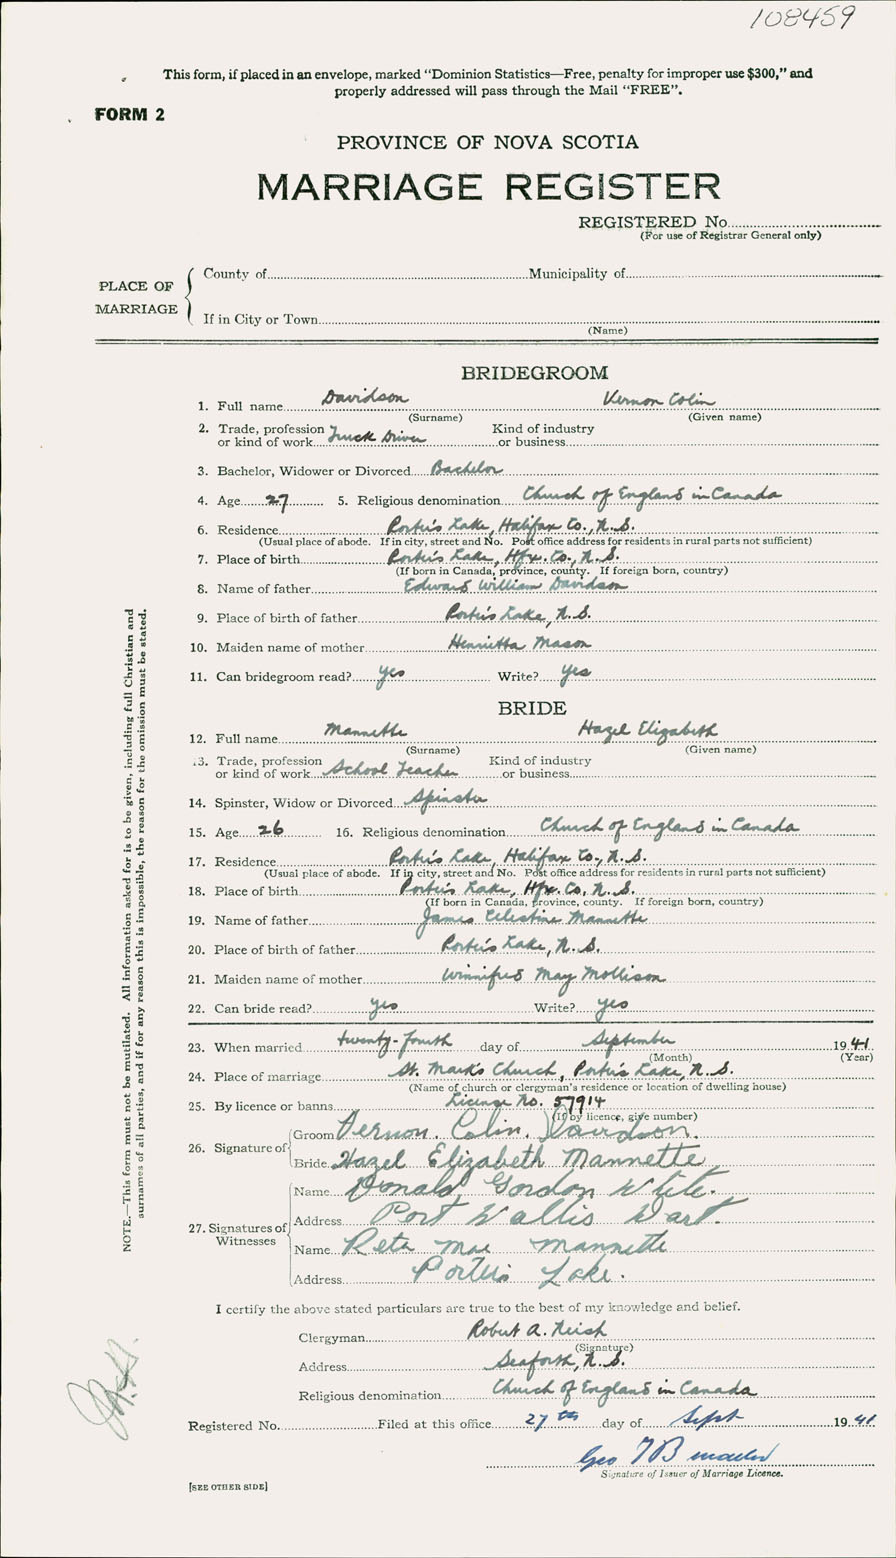 108459
This form, if placed in an envelope, marked "Dominion Statistics—Free, penalty for improper use $300," and
properly addressed will pass through the Mail "FREE".
FORM 2
PROVINCE OF NOVA SCOTIA
MARRIAGE REGISTER
REGISTERED No.
(For use of Registrar General only)
PLACE OF MARRIAGE
County of Municipality of
If in City or Town
(Name)
BRIDEGROOM
1. Full name Davidson Vernon Colin
(Surname) (Given name)
2. Trade, profession Kind of industry
or kind of work Truck Driver or business
3. Bachelor, Widower or Divorced Bachelor
4. Age 27 5. Religious denomination Church of England in Canada
6. Residence Porter's Lake, Halifax Co., N.S.
(Usual place of abode. If in city, street and No. Post office address for residents in rural parts not sufficient)
7. Place of birth Porter's Lake, Hfx. Co., N.S.
(If born in Canada, province, county. If foreign born, country)
8. Name of father Edward William Davidson
9. Place of birth of father Porter's Lake, N.S.
10. Maiden name of mother Henrietta Mason
11. Can bridegroom read? yes Write? yes
BRIDE
12. Full name Mannette Hazel Elizabeth
(Surname) (Given name)
13. Trade, profession Kind of industry
or kind of work School Teacher or business
14. Spinster, Widow or Divorced Spinster
15. Age 26 16. Religious denomination Church of England in Canada
17. Residence Porter's Lake, Halifax Co., N.S.
(Usual place of abode. If in city, street and No. Post office address for residents in rural parts not sufficient)
18. Place of birth Porter's Lake, Hfx. Co., N.S.
(If born in Canada, province, county. If foreign born, country)
19. Name of father James Celestine Mannette
20. Place of birth of father Porter's Lake, N.S.
21. Maiden name of mother Winnifred May Mollison
22. Can bride read? yes Write? yes
23. When married twenty-fourth day of September 1941
(Month) (Year)
24. Place of marriage St. Mark's Church, Porter's Lake, N.S.
(Name of church or clergyman's residence or location of dwelling house)
25. By licence or banns License No. 57914
(If by licence, give number)
26. Signature of
Groom Vernon. Colin. Davidson.
Bride Hazel Elizabeth Mannette
27. Signatures of Witnesses
Name Donald Gordon White.
Address Port Wallis Dart.
Name Reta Mae Mannette
Address Porter's Lake.
I certify the above stated particulars are true to the best of my knowledge and belief.
Clergyman Robert A.
(Signature)
Address Seaforth, N.S.
Religious denomination Church of England in Canada
Registered No. Filed at this office 27th day of Sept 1941
Geo
Signature of Issuer of Marriage Licence.
[SEE OTHER SIDE]
NOTE.—This form must not be mutilated. All information asked for is to be given, including full Christian and
surnames of all parties, and if for any reason this is impossible, the reason for the omission must be stated.